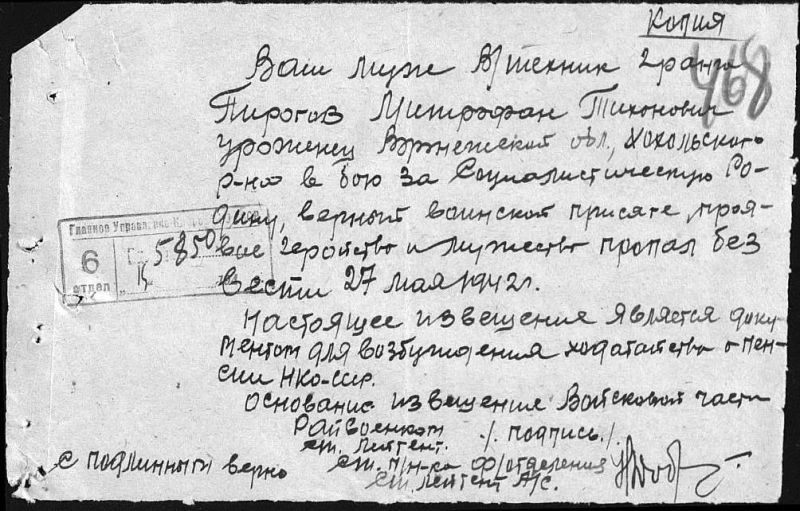 Копия
468
Ваш муж В/техник 2 ранга
Пирогов Митрофан Тихонович
уроженец Воронежской обл., Хохольского
р-на в бою за Социалистическую Ро-
дину, верный воинской присяге, проя-
вив геройство и мужество пропал без
вести 27 мая 1942 г.
Главное Управл.
6
отдел
5850
Настоящее извещение является доку-
ментом для возбуждения ходатайства о пен-
сии НКО-СССР.
Основание извещение Войсковой части
Райвоенком /подпись/.
ст. лейтент.
с подлинным верно
ст. п/н-ка ф/отделения
ст. лейтент А/с.